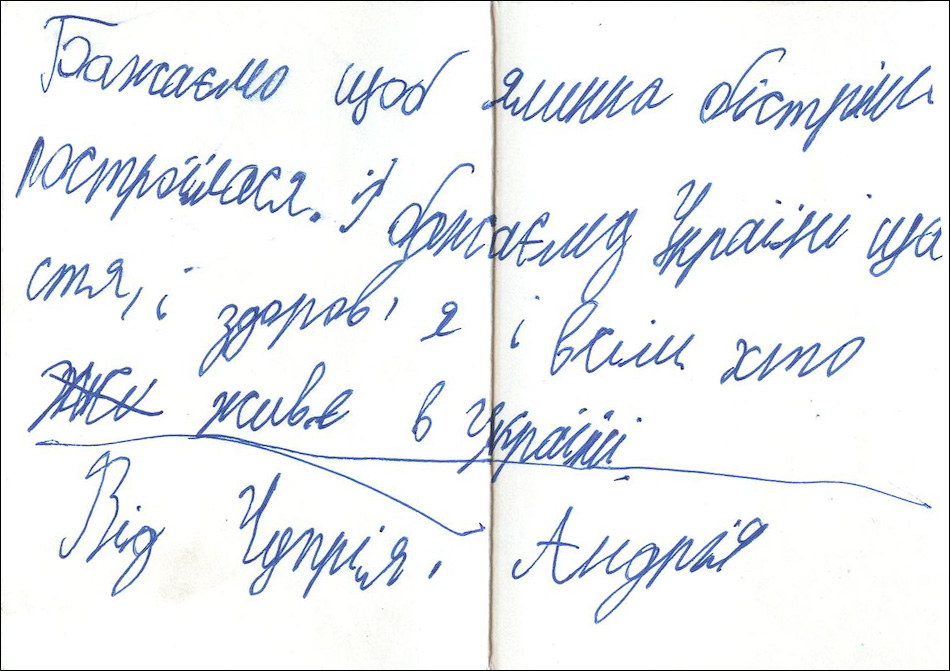 Бажаємо щоб ялинка обістріш
построїлася. І бажаємо Україні ща
стя, і здоров'я і всім хто
живе в Україні
Від Чупрія, Андрія